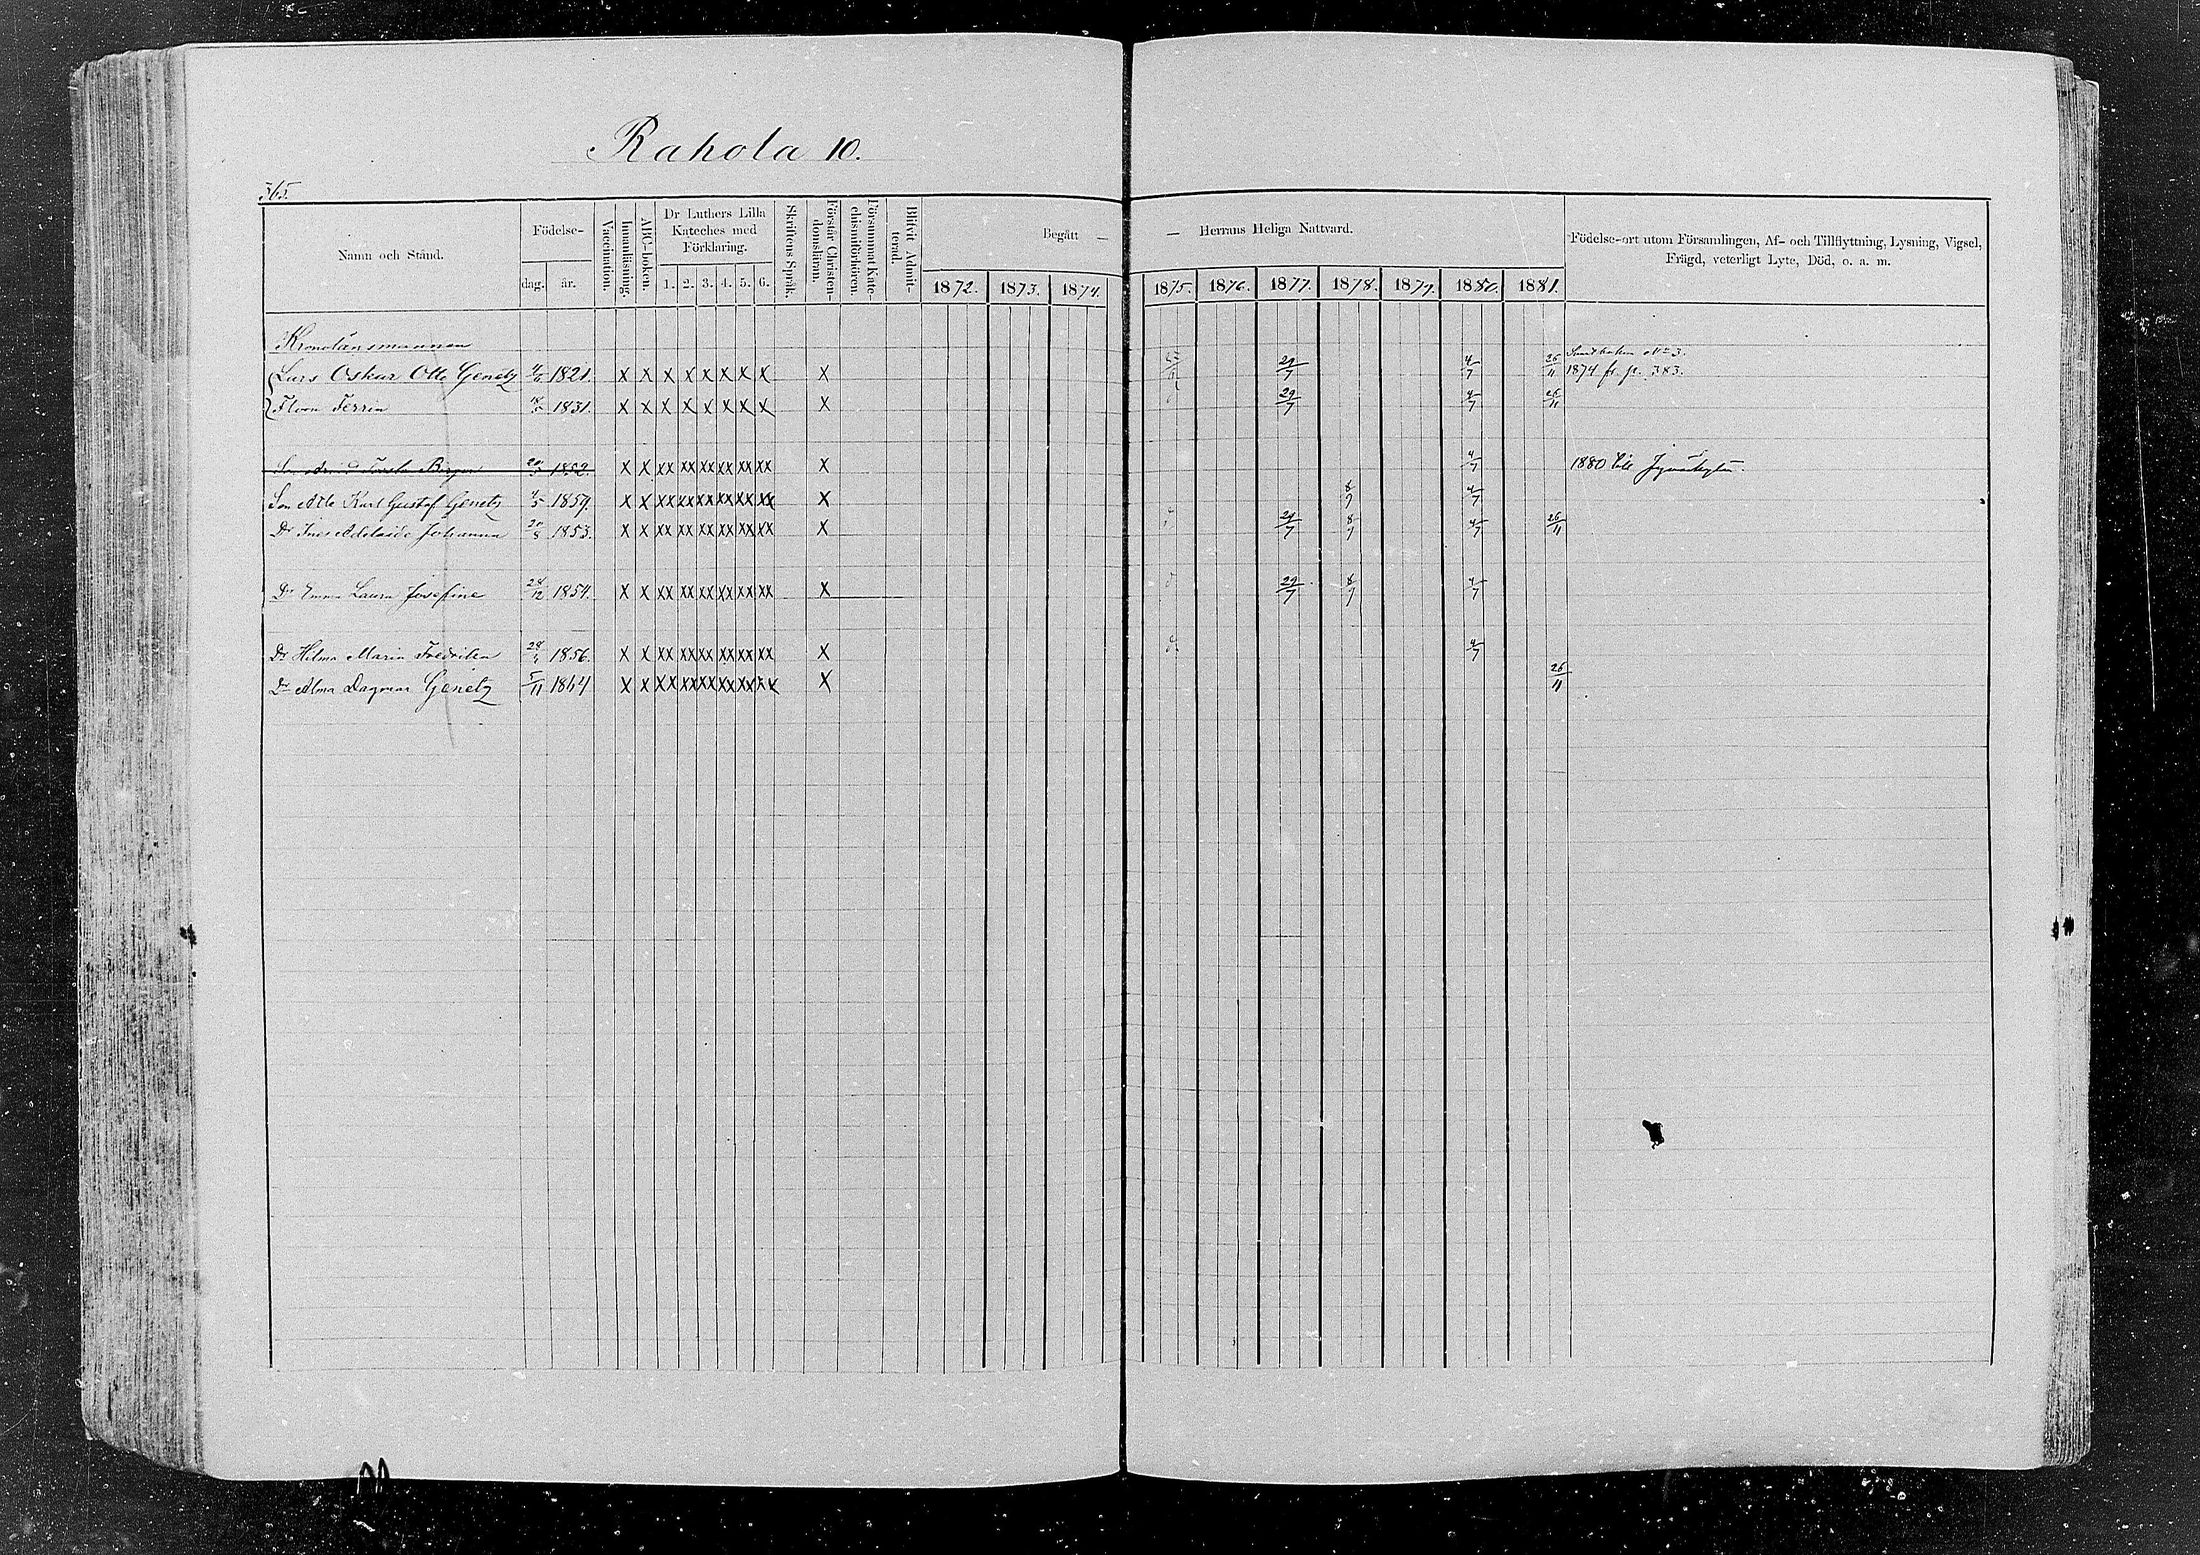 Rahola 10.
365.
Namn och Stånd.
Födelse-
dag. år.
Vaccination.
Innanläsning.
ABC-boken.
Dr Luthers Lilla
Kateches med
Förklaring.
1. 2. 3. 4. 5. 6.
Skriftens Språk.
Förstår Christen-
domsläran.
Försummat Kate-
chismiförhören.
Blifvit Admit-
terad.
Begått — — Herrans Heliga Nattvard.
1872. 1873. 1874. 1875. 1876. 1877. 1878. 1879. 1880. 1881.
Födelse-ort utom Församlingen, Af- och Tillflyttning, Lysning, Vigsel,
Frägd, veterligt Lyte, Död, o. a. m.
Kronolänsmannen
Lars Oskar Otto Genetz 1821. x x x x x x x x x 29/7 4/7 26/11 1874 fr. p. 383.
Flora Ferrin 1831. x x x x x x x x x 29/7 4/7 26/11
Birger 1852. x x xx xx xx xx xx xx x 4/7 1880 till Jyväskylä.
Son Atle Karl Gustaf Genetz 1859. x x xx xx xx xx xx xx x 4/7
Dr Ines Adelaide Johanna 20/8 1853. x x xx xx xx xx xx xx x 29/7 8/7 4/7 26/11
Dr Emma Laura Josefina 28/12 1854. x x xx xx xx xx xx xx x 29/7 8/7 4/7
Dr Hilma Maria Fredrika 1856. x x xx xx xx xx xx xx x 4/7
Dr Alma Dagmar Genetz 5/11 1864 x x xx xx xx xx xx xx x 26/11